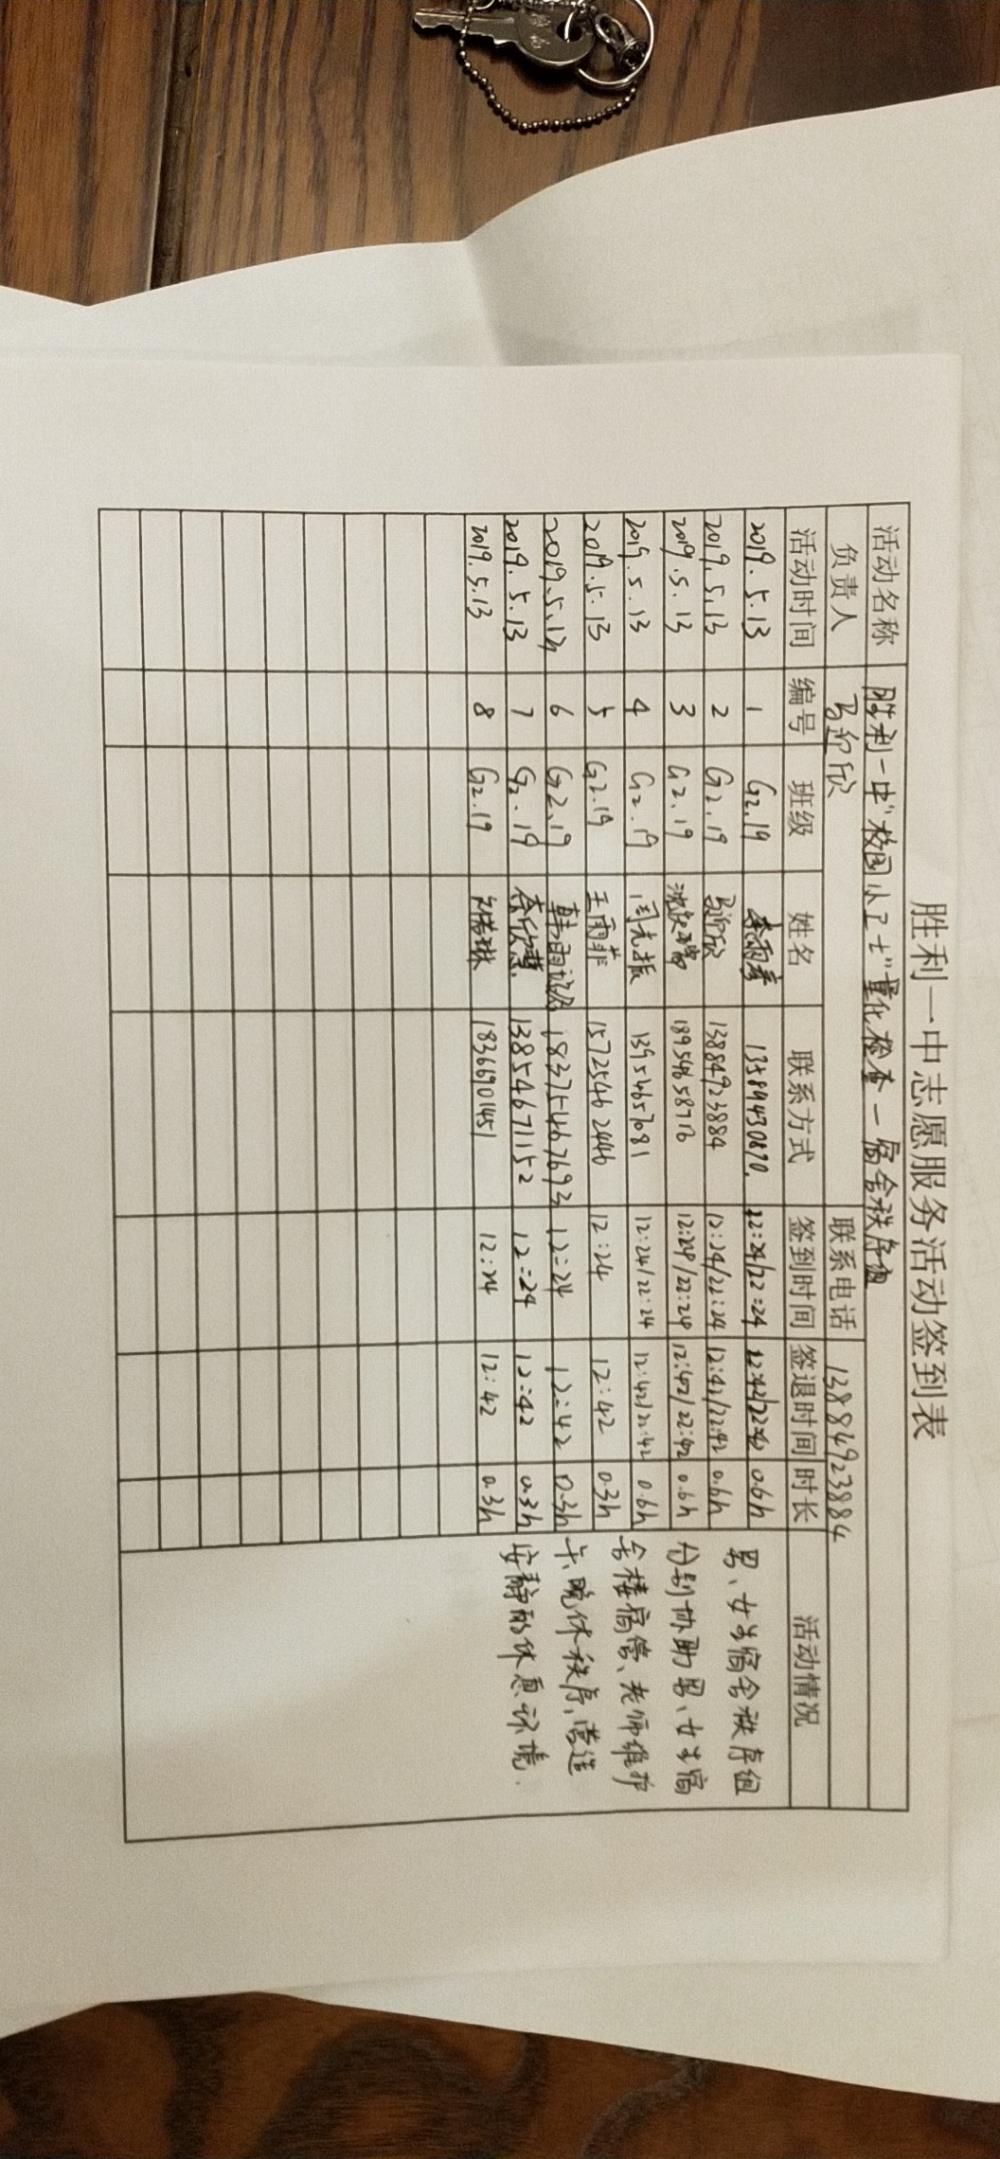 胜利一中志愿服务活动签到表
活动名称 胜利一中"校园小卫士"量化检查—宿舍秩序组
负责人 马迎欣 联系电话 13884923884
活动时间 编号 班级 姓名 联系方式 签到时间 签退时间 时长 活动情况
2019.5.13 1 G2.19 13589430870. 12:24/22:24 12:42/22:42 0.6h
2019.5.13 2 G2.19 马迎欣 13884923884 12:24/22:24 12:42/22:42 0.6h
2019.5.13 3 G2.19 18954658713 12:24/22:24 12:42/22:42 0.6h
2019.5.13 4 G2.19 闫光振 13954657081 12:24/22:24 12:42/22:42 0.6h
2019.5.13 5 G2.19 王雨菲 15725462446 12:24 12:42 0.3h
2019.5.13 6 G2.19 18375467693 12:24 12:42 0.3h
2019.5.13 7 G2.19 13854671152 12:24 12:42 0.3h
2019.5.13 8 G2.19 18366901451 12:24 12:42 0.3h
男、女生宿舍秩序组
分别协助男、女生宿
舍楼宿管、老师维护
午、晚休秩序,营造
安静的休息环境.